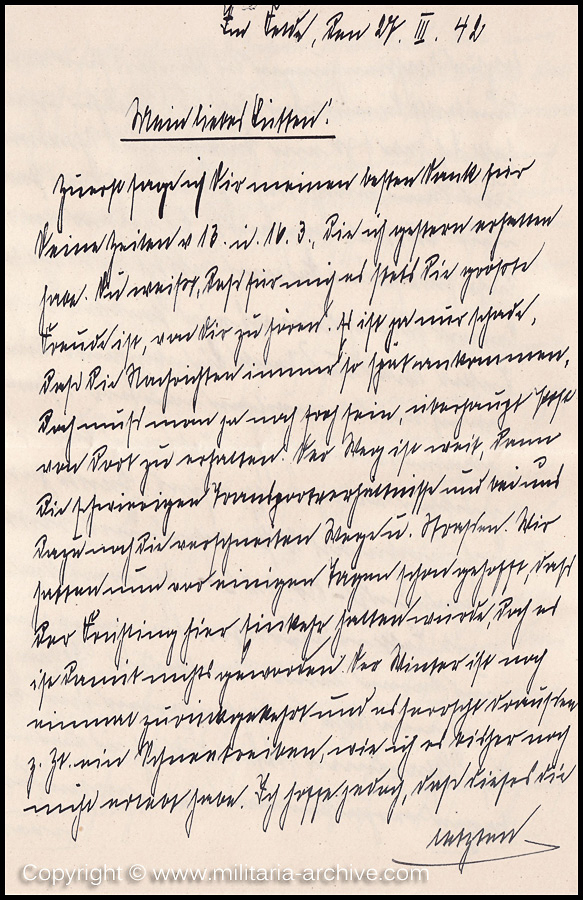 Im Felde, den 27. III. 42
Mein liebes
Zuerst sage ich Dir meinen besten Dank für
Deine Zeilen v 13. u. 16. 3., die ich gestern erhalten
habe. Du weißt, daß für mich es stets die größte
Freude ist, von Dir zu hören. Es ist ja nur schade,
daß die Nachrichten immer so spät ankommen,
doch muß man ja noch froh sein, überhaupt Post
von dort zu erhalten. Der Weg ist weit, dann
die schwierigen Transportverhältnisse und bei uns
dazu noch die verschneiten Wege u. Straßen. Wir
hatten nun vor einigen Tagen schon gehofft, daß
der Frühling hier Einkehr halten würde, doch es
ist damit nichts geworden. Der Winter ist noch
einmal zurückgekehrt und es herrscht draußen
z. Zt. ein Schneetreiben, wie ich es bisher noch
nicht erlebt habe. Ich hoffe jedoch, daß dieses die
letzten
Copyright © www.militaria-archive.com